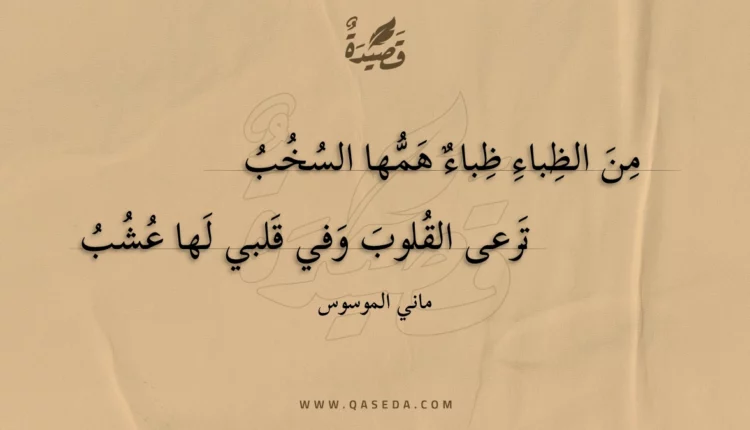 قَصِيدَةٌ
مِنَ الظِباءِ ظِباءٌ هَمُّها السُخُبُ
تَرعى القُلوبَ وَفي قَلبي لَها عُشُبُ
ماني الموسوس
WWW.QASEDA.COM